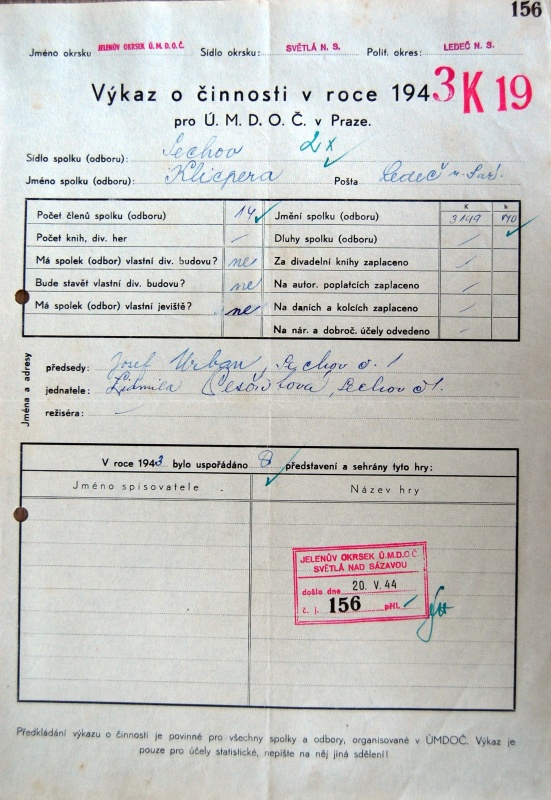 156
Jméno okrsku JELENŮV OKRSEK Ú.M.D.O.Č. Sídlo okrsku: SVĚTLÁ N. S. Polit. okres: LEDEČ N. S.
Výkaz o činnosti v roce 1943 K 19
pro Ú. M. D. O. Č. v Praze.
2x
Sídlo spolku (odboru): Sechov
Jméno spolku (odboru): Klicpera Pošta Ledeč n. Sáz.
K h
Počet členů spolku (odboru) 14 Jmění spolku (odboru) 3149
Počet knih, div. her — Dluhy spolku (odboru) —
Má spolek (odbor) vlastní div. budovu? ne Za divadelní knihy zaplaceno —
Bude stavět vlastní div. budovu? ne Na autor. poplatcích zaplaceno —
Má spolek (odbor) vlastní jeviště? ne Na daních a kolcích zaplaceno —
Na nár. a dobroč. účely odvedeno —
Jména a adresy
předsedy: Josef Urban, Sechov č. 1
jednatele: Lidmila Sechov č 1.
režiséra: —
V roce 1943 bylo uspořádáno 8 představení a sehrány tyto hry:
Jméno spisovatele Název hry
JELENŮV OKRSEK Ú.M.D.O.Č.
SVĚTLÁ NAD SÁZAVOU
došlo dne 20. V. 44
č. j. 156 příl. —
Předkládání výkazu o činnosti je povinné pro všechny spolky a odbory, organisované v ÚMDOČ. Výkaz je
pouze pro účely statistické, nepište na něj jiná sdělení!